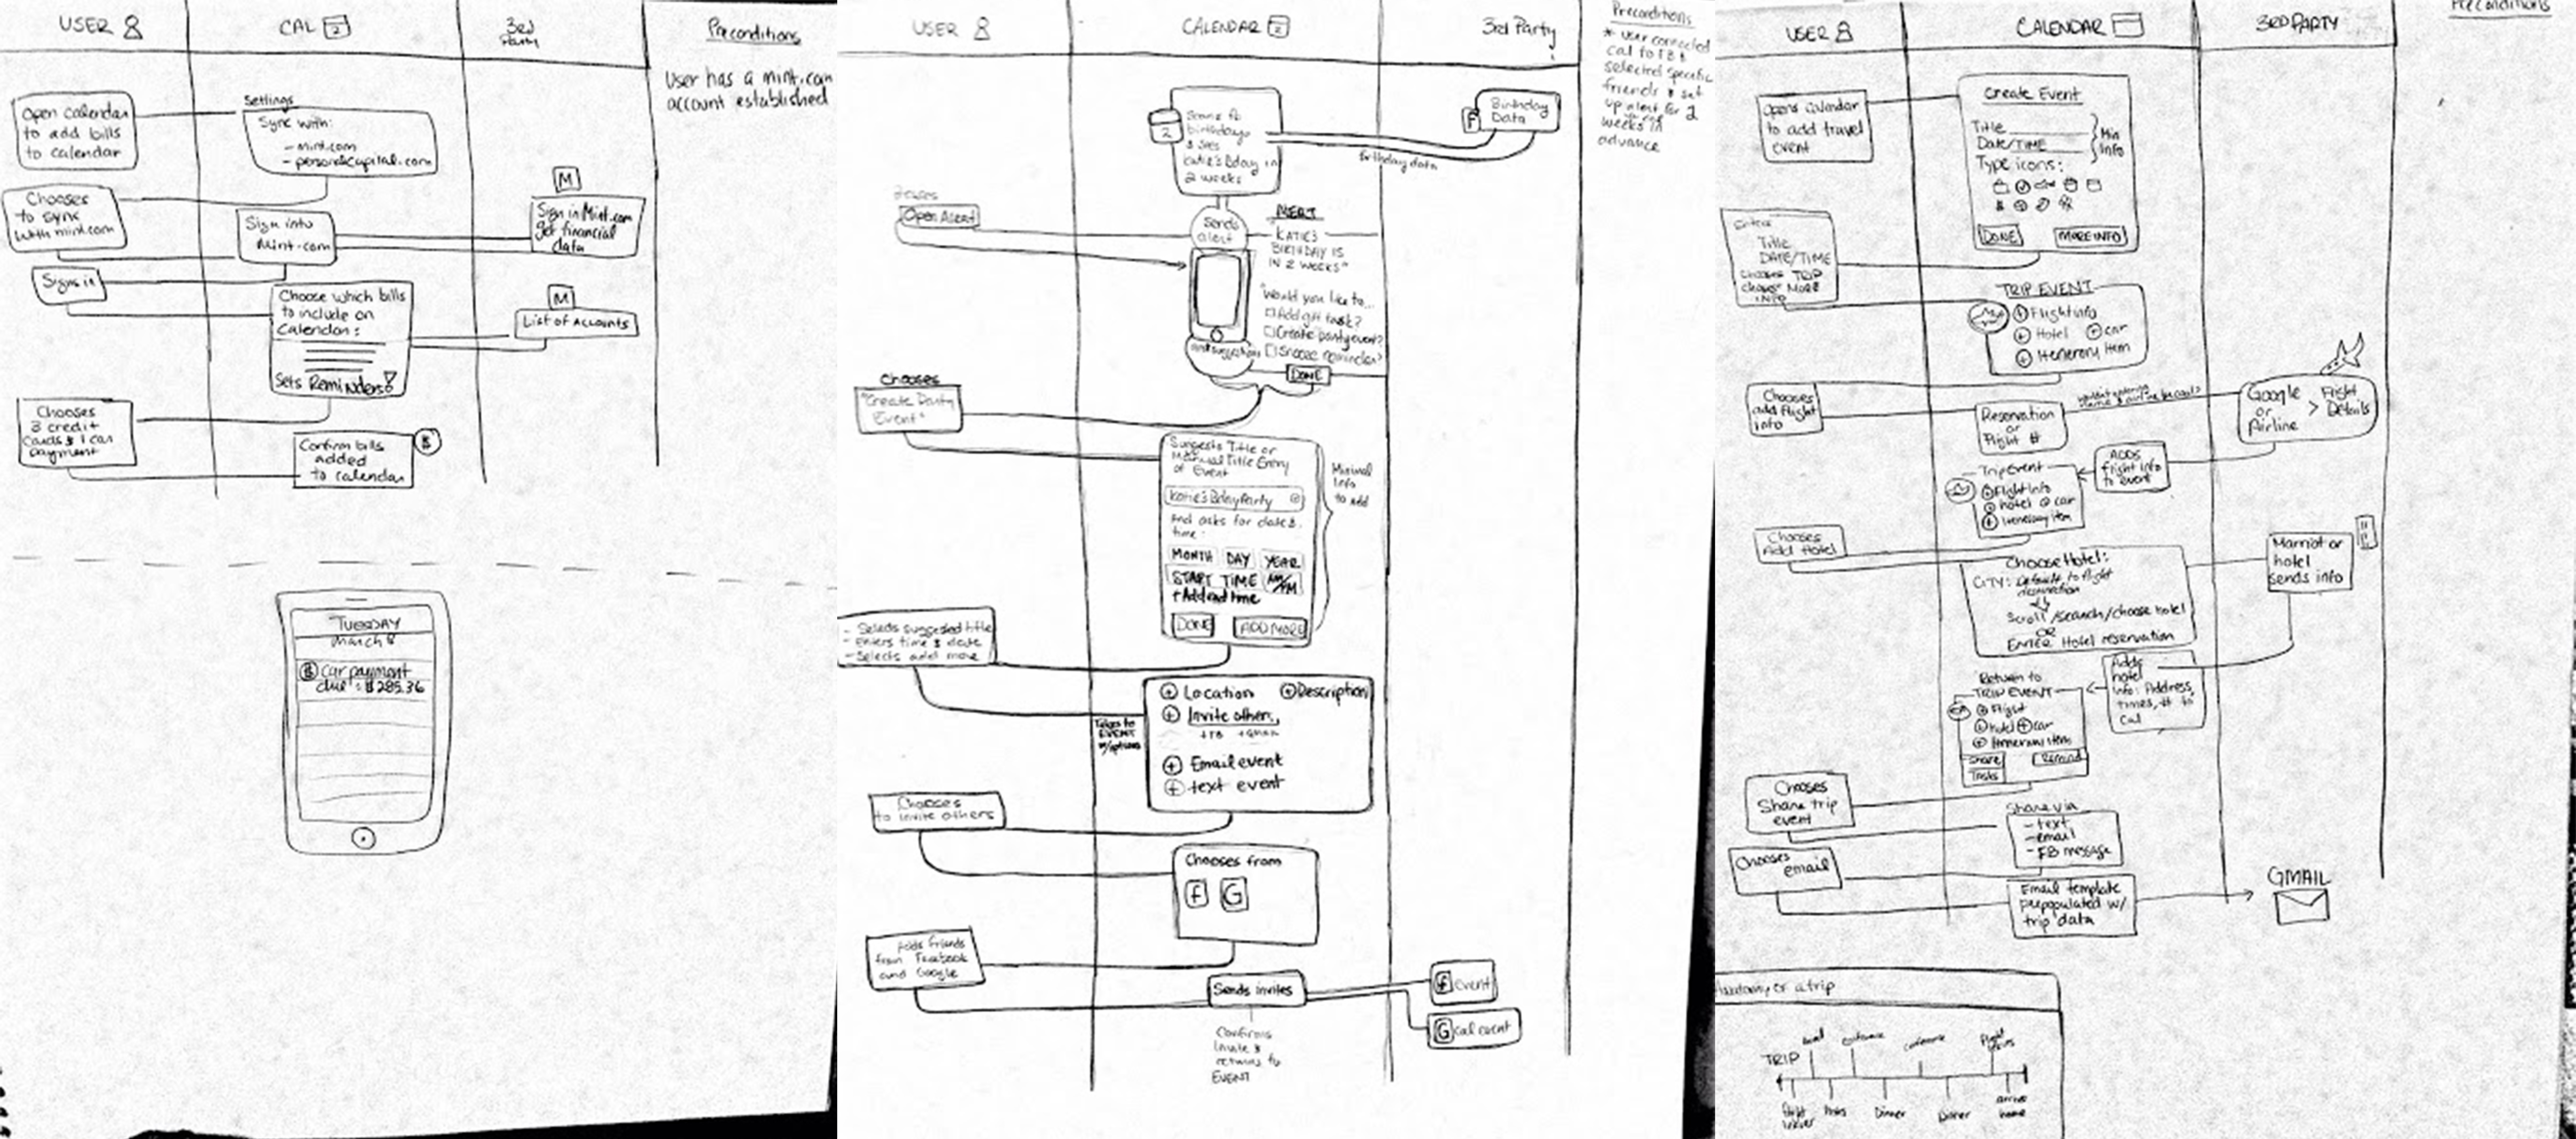 USER
CAL
2
3rd
Party
Preconditions
User has a mint.com
account established
Open calendar
to add bills
to calendar
Settings
Sync with:
- mint.com
- personalcapital.com
Chooses
to sync
with mint.com
Sign into
Mint.com
M
Sign in Mint.com
get financial
data
Signs in
Choose which bills
to include on
Calendar:
Sets Reminders
M
List of Accounts
Chooses
3 credit
cards & 1 car
payment
Confirm bills
added
to calendar
$
TUESDAY
March 8
$ Car payment
due: $285.36
USER
CALENDAR
2
3rd Party
Preconditions
* user connected
cal to FB &
selected specific
friends & set
up alert for 2
weeks in
advance
2
birthdays
& sees
Katie's Bday in
2 weeks
F
Birthday
Data
birthday data
Open Alert
Sends
alert
ALERT
KATIE'S
BIRTHDAY IS
IN 2 WEEKS"
"Would you like to...
Add gift task?
Create party event?
Snooze reminder?
DONE
Chooses
"Create Party
Event"
Suggests Title or
Manual Title Entry
of Event
Katie's Bday Party
And asks for date &
time:
MONTH DAY YEAR
START TIME AM/PM
+ Add end time
DONE ADD MORE
Minimal
Info
to add
- Selects suggested title
- Enters time & date
- Selects add more
Takes to
EVENT
w/options
+ Location + Description
+ Invite others
+ FB + Gmail
+ Email event
+ text event
Chooses
to invite others
Chooses from
f G
Adds friends
from Facebook
and Google
Sends invites
f Event
G cal event
Confirms
Invite &
returns to
EVENT
USER
CALENDAR
3RD PARTY
Preconditions
Opens calendar
to add travel
event
Create Event
Title
Date/TIME
Min
Info
Type icons:
DONE MORE INFO
Enters
Title
DATE/TIME
Chooses TRIP
Chooses MORE
INFO
TRIP EVENT
+ Flight info
+ Hotel + car
+ Itenerary Item
Chooses
add flight
info
Reservation
or
Flight #
Google
or
Airline
> Flight
Details
ADDS
flight info
to event
Trip Event
+ Flight Info
+ hotel + car
+ Itenerary item
Chooses
Add Hotel
Choose Hotel:
CITY: Defaults to flight
destination
Scroll/search/choose hotel
OR
ENTER Hotel reservation
Marriot or
hotel
sends info
Adds
hotel
info: Address,
times, # to
Cal
Return to
TRIP EVENT
+ Flight
+ hotel + car
+ Itenerary item
Share Remind
Tasks
Chooses
Share trip
event
Share via
- text
- email
- FB message
Chooses
email
Email template
prepopulated w/
trip data
GMAIL
Anatomy of a trip
TRIP
conference
conference
Dinner
Dinner
arrive
home